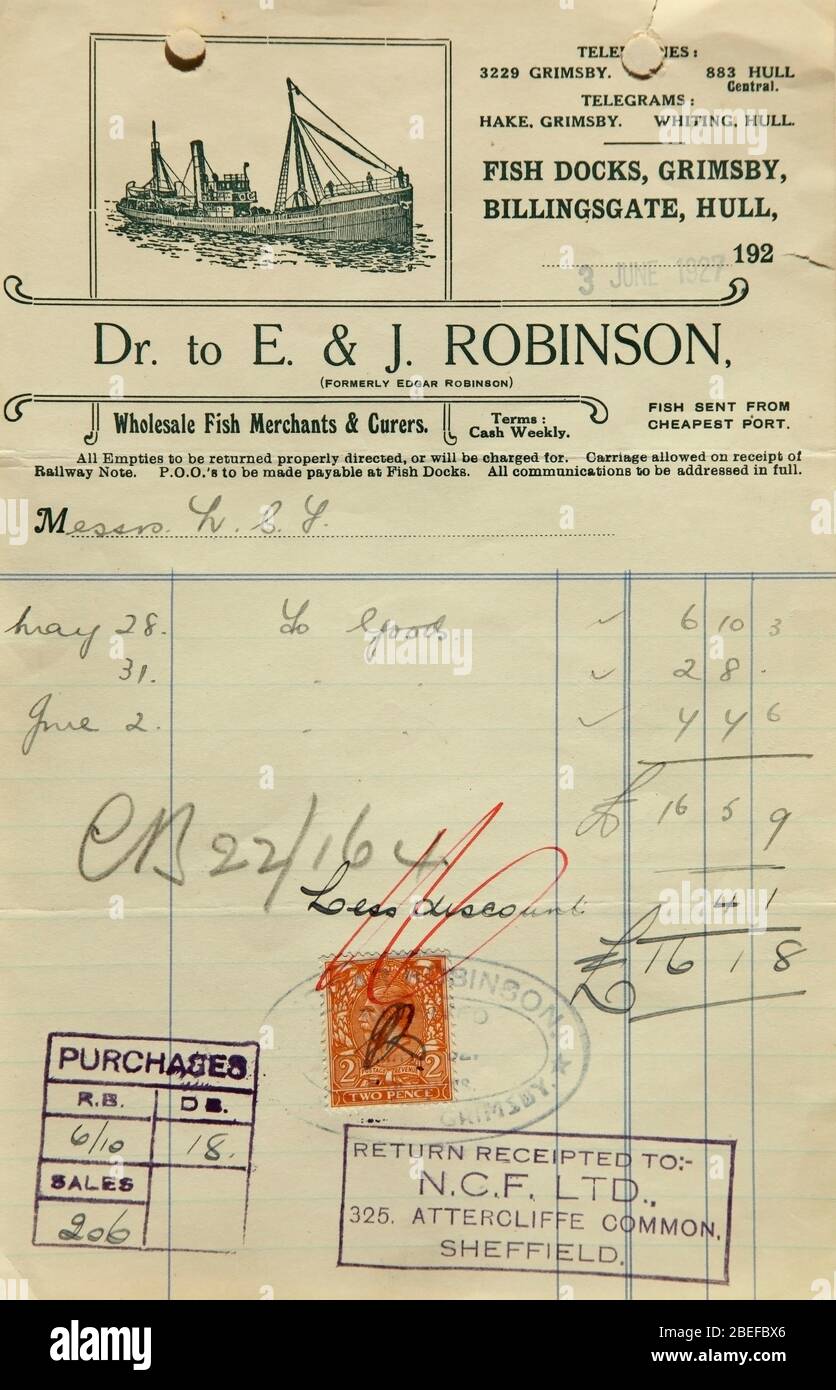 TELEPHONES:
3229 GRIMSBY. 883 HULL
Central.
TELEGRAMS:
HAKE, GRIMSBY. WHITING, HULL.
FISH DOCKS, GRIMSBY,
BILLINGSGATE, HULL,
192
3 JUNE 1927
Dr. to E. & J. ROBINSON,
(FORMERLY EDGAR ROBINSON)
Wholesale Fish Merchants & Curers.
Terms:
Cash Weekly.
FISH SENT FROM
CHEAPEST PORT.
All Empties to be returned properly directed, or will be charged for. Carriage allowed on receipt of
Railway Note. P.O.O.'s to be made payable at Fish Docks. All communications to be addressed in full.
Messrs.
May 28. To Goods. 6 10 3
31. 2 8 .
June 2. 4 4 6
7
£ 16 5 9
CB 22/164
Less discount 4 1
£ 16 1 8
ROBINSON
GRIMSBY.
2 POSTAGE REVENUE 2
TWO PENCE
PURCHASES
R.B. DB.
6/10 18.
SALES
206
RETURN RECEIPTED TO:-
N.C.F. LTD.,
325. ATTERCLIFFE COMMON,
SHEFFIELD.
alamy
Image ID: 2BEFBX6
www.alamy.com